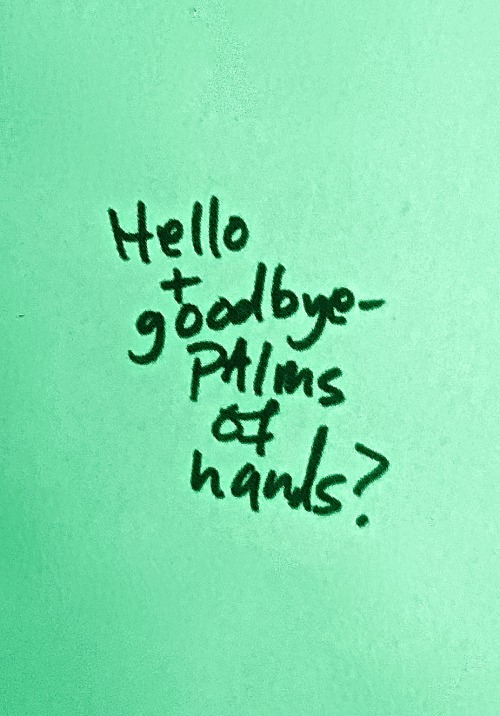 Hello
+
goodbye-
PAlms
of
hands?